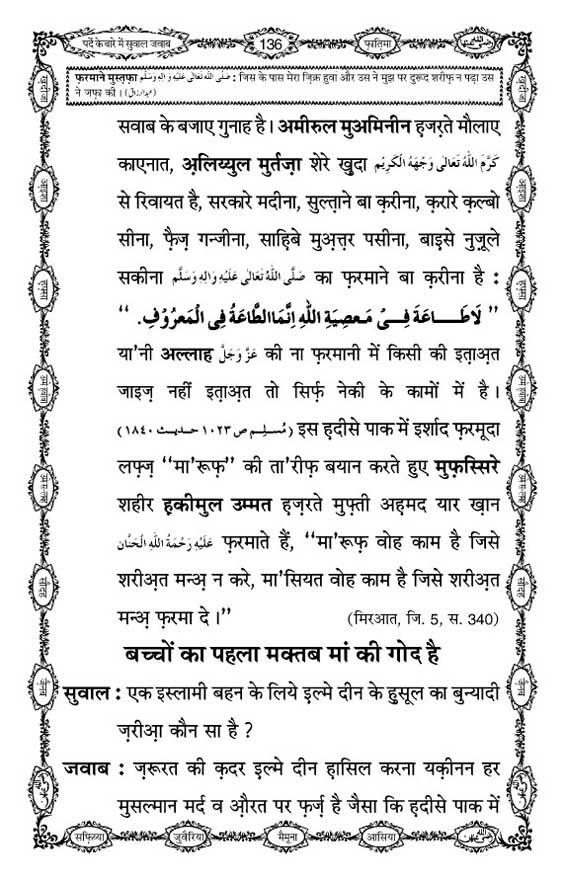 पर्दे के बारे में सुवाल जवाब
136
फ़ातिमा
फ़रमाने मुस्त़फ़ा صَلَّى اللهُ تَعَالٰى عَلَيْهِ وَاٰلِهٖ وَسَلَّم : जिस के पास मेरा ज़िक्र हुवा और उस ने मुझ पर दुरूद शरीफ़ न पढ़ा उस
ने जफ़ा की । (عبدالرزاق)
सवाब के बजाए गुनाह है । अमीरुल मुअमिनीन ह़ज़रते मौलाए
काएनात, अ़लिय्युल मुर्तज़ा शेरे ख़ुदा كَرَّمَ اللهُ تَعَالٰى وَجْهَهُ الْكَرِيْم
से रिवायत है, सरकारे मदीना, सुल्त़ाने बा क़रीना, क़रारे क़ल्बो
सीना, फ़ैज़ गन्जीना, साह़िबे मुअ़त्तर पसीना, बाइसे नुज़ूले
सकीना صَلَّى اللهُ تَعَالٰى عَلَيْهِ وَاٰلِهٖ وَسَلَّم का फ़रमाने बा क़रीना है :
" لَاطَاعَةَ فِيْ مَعْصِيَةِ اللهِ اِنَّمَا الطَّاعَةُ فِي الْمَعْرُوْفِ. "
या'नी अल्लाह عَزَّوَجَلَّ की ना फ़रमानी में किसी की इत़ाअ़त
जाइज़ नहीं इत़ाअ़त तो सिर्फ़ नेकी के कामों में है ।
(مُسلِم ص ١٠٢٣ حديث ١٨٤٠) इस ह़दीसे पाक में इर्शाद फ़रमूदा
लफ़्ज़ "मा'रूफ़" की ता'रीफ़ बयान करते हुए मुफ़स्सिरे
शहीर ह़कीमुल उम्मत ह़ज़रते मुफ़्ती अह़मद यार ख़ान
عَلَيْهِ رَحْمَةُ اللهِ الْحَنَّان फ़रमाते हैं, "मा'रूफ़ वोह काम है जिसे
शरीअ़त मन्अ़ न करे, मा'सियत वोह काम है जिसे शरीअ़त
मन्अ़ फ़रमा दे ।" (मिरआत, जि. 5, स. 340)
बच्चों का पहला मक्तब मां की गोद है
सुवाल : एक इस्लामी बहन के लिये इल्मे दीन के ह़ुसूल का बुन्यादी
ज़रीआ़ कौन सा है ?
जवाब : ज़रूरत की क़दर इल्मे दीन ह़ासिल करना यक़ीनन हर
मुसल्मान मर्द व औ़रत पर फ़र्ज़ है जैसा कि ह़दीसे पाक में
सफ़िय्या
जुवैरिया
मैमूना
आसिया